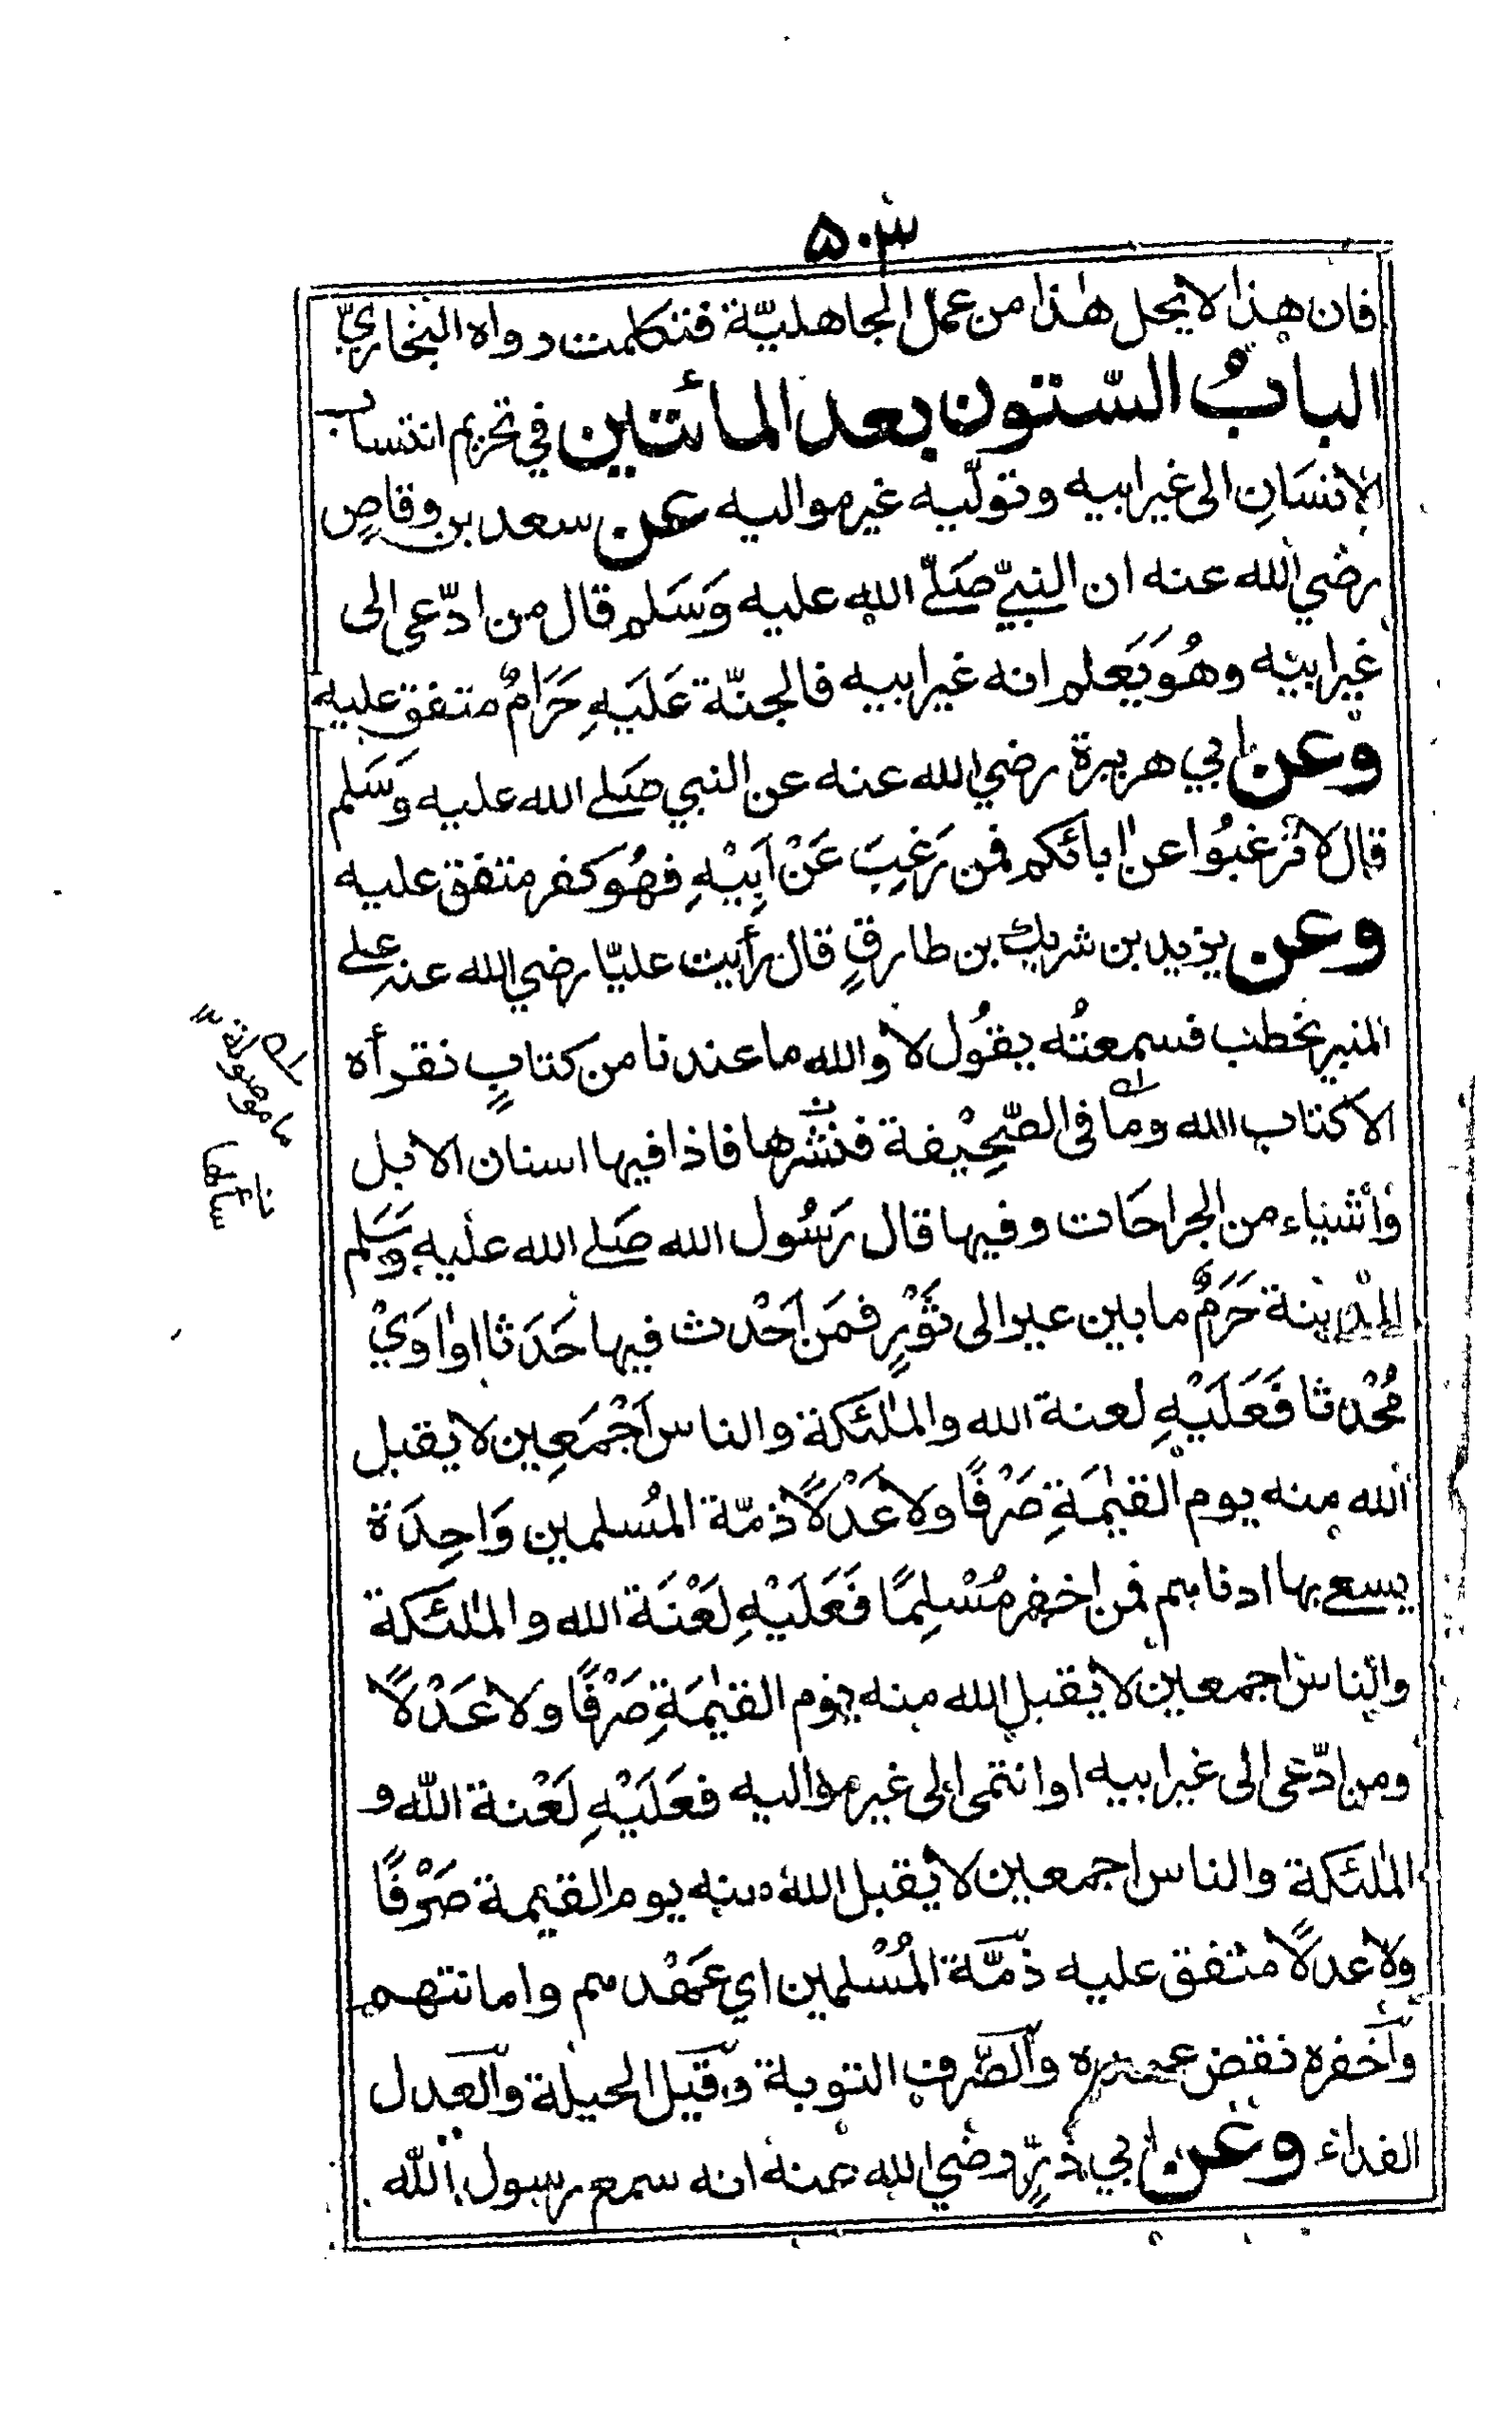 ۵۰۳
فان هذا لا يحل هٰذا من عمل الجاهليّة فتكلمت رواه البخاريّ
الباب السّتون بعد المأتين في تحريم انتساب
الانسَانِ الى غير ابيه وتولّيه غير مواليه عن سعد بن وقاصٍ
رضي الله عنه ان النبيّ صَلّے الله عليه وَسَلم قال من ادّعى الى
غير ابيه وهُوَ يَعلم انه غير ابيه فالجنّة عَلَيهِ حَرَامٌ متفق عليه
وعن ابي هريرة رضي الله عنه عن النبي صَلے الله عليه وَسَلم
قال لا ترغبُوا عن اٰبائكم فمن رَغِبَ عَنْ اَبِيْهِ فهُوَ كفر متفق عليه
وعن يزيد بن شريك بن طارقٍ قال رأيت عليّا رضي الله عنه علے
المنبر يخطب فسمعتُه يقُول لا والله ما عندنا من كتابٍ نقرأه
الا كتاب الله وما فى الصّحِيْفة فنشرها فاذا فيها اسنان الابل
وأشياء من الجراحَات وفيها قال رَسُول الله صَلے الله عليه وَسَلم
المدينة حَرَمٌ ما بين عير الى ثَوْرٍ فمَن اَحْدث فيها حَدَثا او اٰوَيْ
مُحْدثا فَعَلَيْهِ لعنة الله والملٰئكة والناس اَجْمَعِين لا يقبل
الله منه يوم القيٰمَةِ صَرْفًا ولا عَدْلًا ذمّة المُسلمين وَاحِدَة
يسعے بها ادناهم فمن اخفر مُسْلِمًا فَعَلَيْهِ لَعْنَة الله والملٰئكة
والناس اجمعين لا يقبل الله منه يوم القيٰمَةِ صَرْفًا ولا عَدْلًا
ومن ادّعى الى غير ابيه او انتمى الى غير مواليه فعَلَيْهِ لَعْنة اللّه و
الملٰئكة والناس اجمعين لا يقبل الله منه يوم القيمة صَرْفًا
ولا عدلًا متفق عليه ذمّة المُسْلمين اي عَهْدهم وامانتهم
وأخفره نقض عهده والصّرف التوبة وقيل الحيلة والعدل
الفداء وعن ابي ذرٍّ رضي الله عنه انه سمع رسول الله
ما موصولة